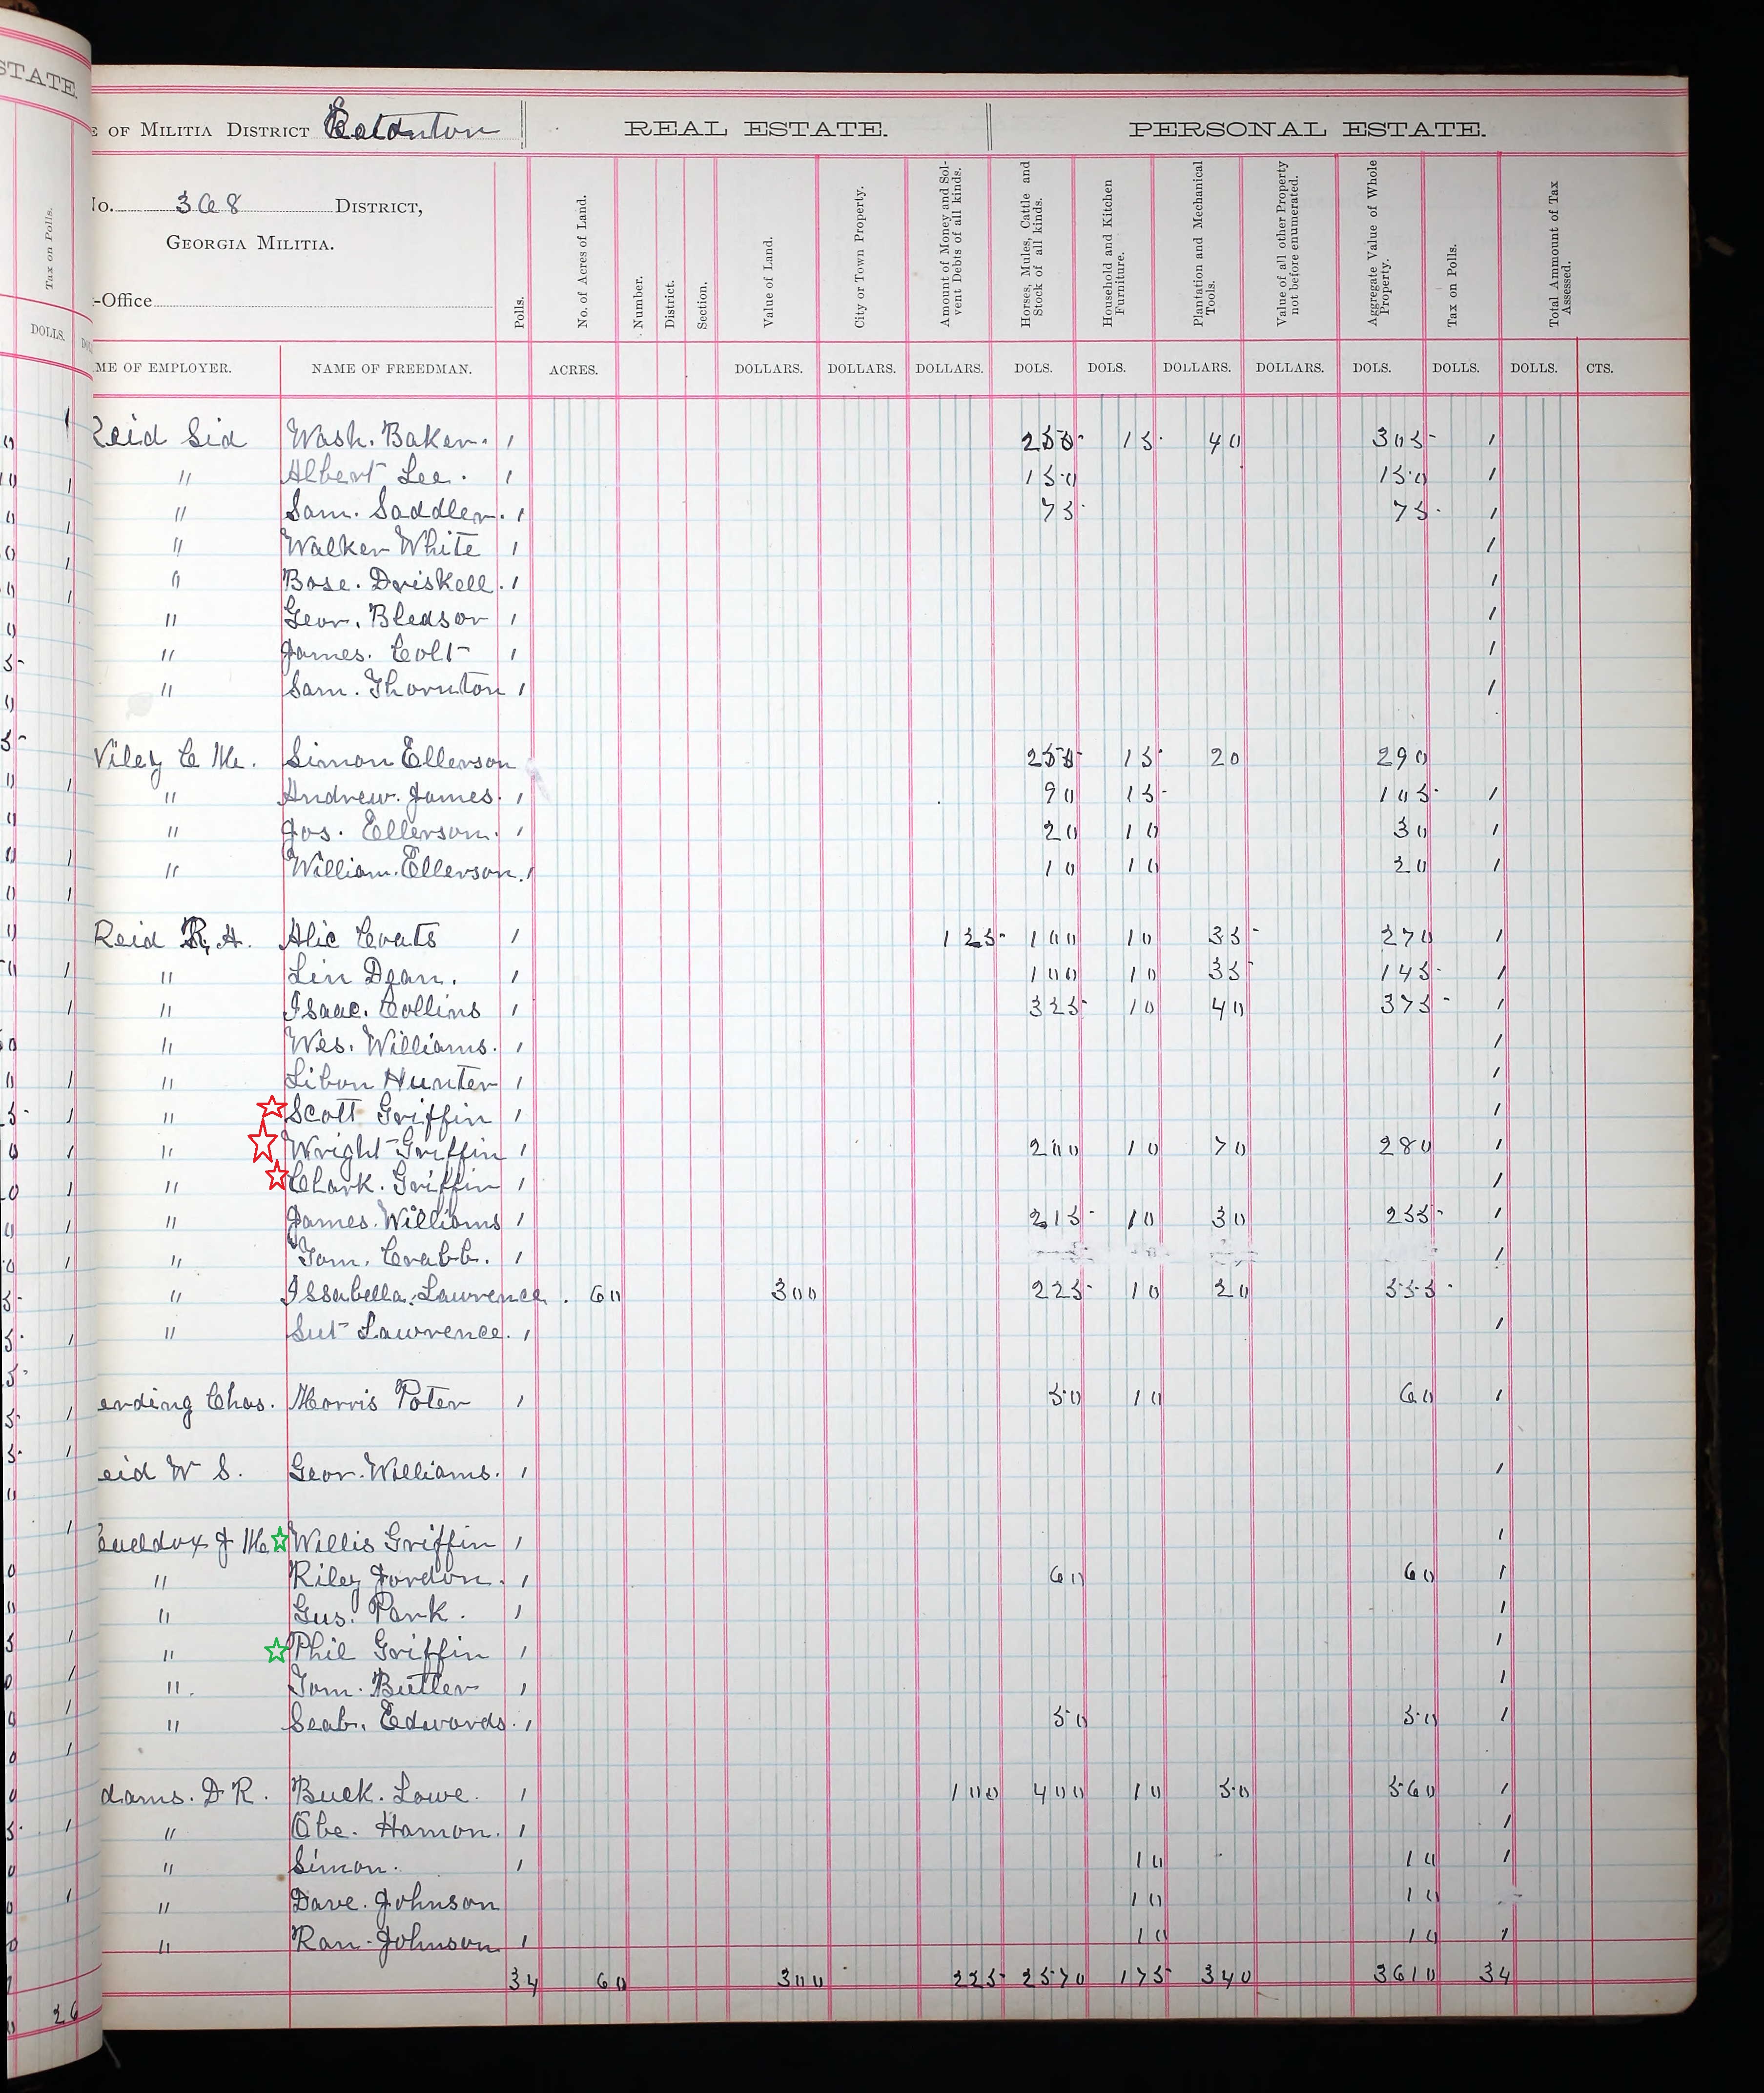 STATE.
Tax on Polls.
DOLLS.
E OF MILITIA DISTRICT Eatonton REAL ESTATE. PERSONAL ESTATE.
No. 368 DISTRICT,
GEORGIA MILITIA.
-Office
Polls. No. of Acres of Land. Number. District. Section. Value of Land. City or Town Property. Amount of Money and Solvent Debts of all kinds. Horses, Mules, Cattle and Stock of all kinds. Household and Kitchen Furniture. Plantation and Mechanical Tools. Value of all other Property not before enumerated. Aggregate Value of Whole Property. Tax on Polls. Total Ammount of Tax Assessed.
ME OF EMPLOYER. NAME OF FREEDMAN. ACRES. DOLLARS. DOLLARS. DOLLARS. DOLS. DOLS. DOLLARS. DOLLARS. DOLS. DOLLS. DOLLS. CTS.
Reid Sid Wash. Baker. 1 250 15 40 305 1
" Albert Lee. 1 150 150 1
" Sam. Saddler. 1 75 75 1
" Walker White 1 1
" Bose. Driskell. 1 1
" Geor. Bledsor 1 1
" James. Colt 1 1
" Sam. Thornton 1 1
Wiley C M. Simon Ellerson 255 15 20 290
" Andrew. James. 1 90 15 105 1
" Jos. Ellerson. 1 20 10 30 1
" William. Ellerson. 1 10 10 20 1
Reid R, H. Alic Coats 1 125 100 10 35 270 1
" Lin Dean. 1 100 10 35 145 1
" Isaac. Collins 1 325 10 40 375 1
" Wes. Williams. 1 1
" Libon Hunter 1 1
" Scott Griffin 1 1
" Wright Griffin 1 200 10 70 280 1
" Clark. Griffin 1 1
" James. Williams 1 215 10 30 255 1
" Tom. Crabb. 1 1
" Issabella. Lawrence. 60 300 225 10 20 555
" Sut Lawrence. 1 1
ending Chas. Morris Poter 1 50 10 60 1
eid W S. Geor. Williams. 1 1
J M Willis Griffin 1 1
" Riley Jordon. 1 60 60 1
" Gus. Park. 1 1
" Phil Griffin 1 1
" Tom. Butler 1 1
" Seab. Edwards. 1 50 50 1
dams. D R. Buck. Lowe. 1 100 400 10 50 560 1
" Abe. Hamon. 1 1
" Simon. 1 10 10 1
" Dave. Johnson 10 10
" Ran. Johnson 1 10 10 1
34 60 300 225 2570 175 340 3610 34
26